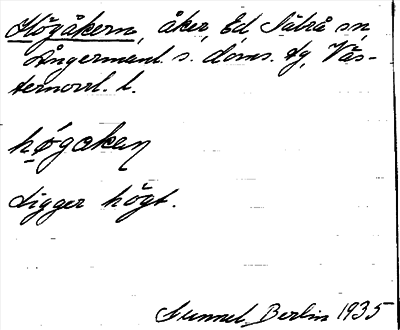 Högåkern, åker, Ed Sätrå sn,
Ångermanl. s. doms. tg, Väs-
ternorrl. l.
høgaken
Ligger högt.
Sunnel, Berlin 1935